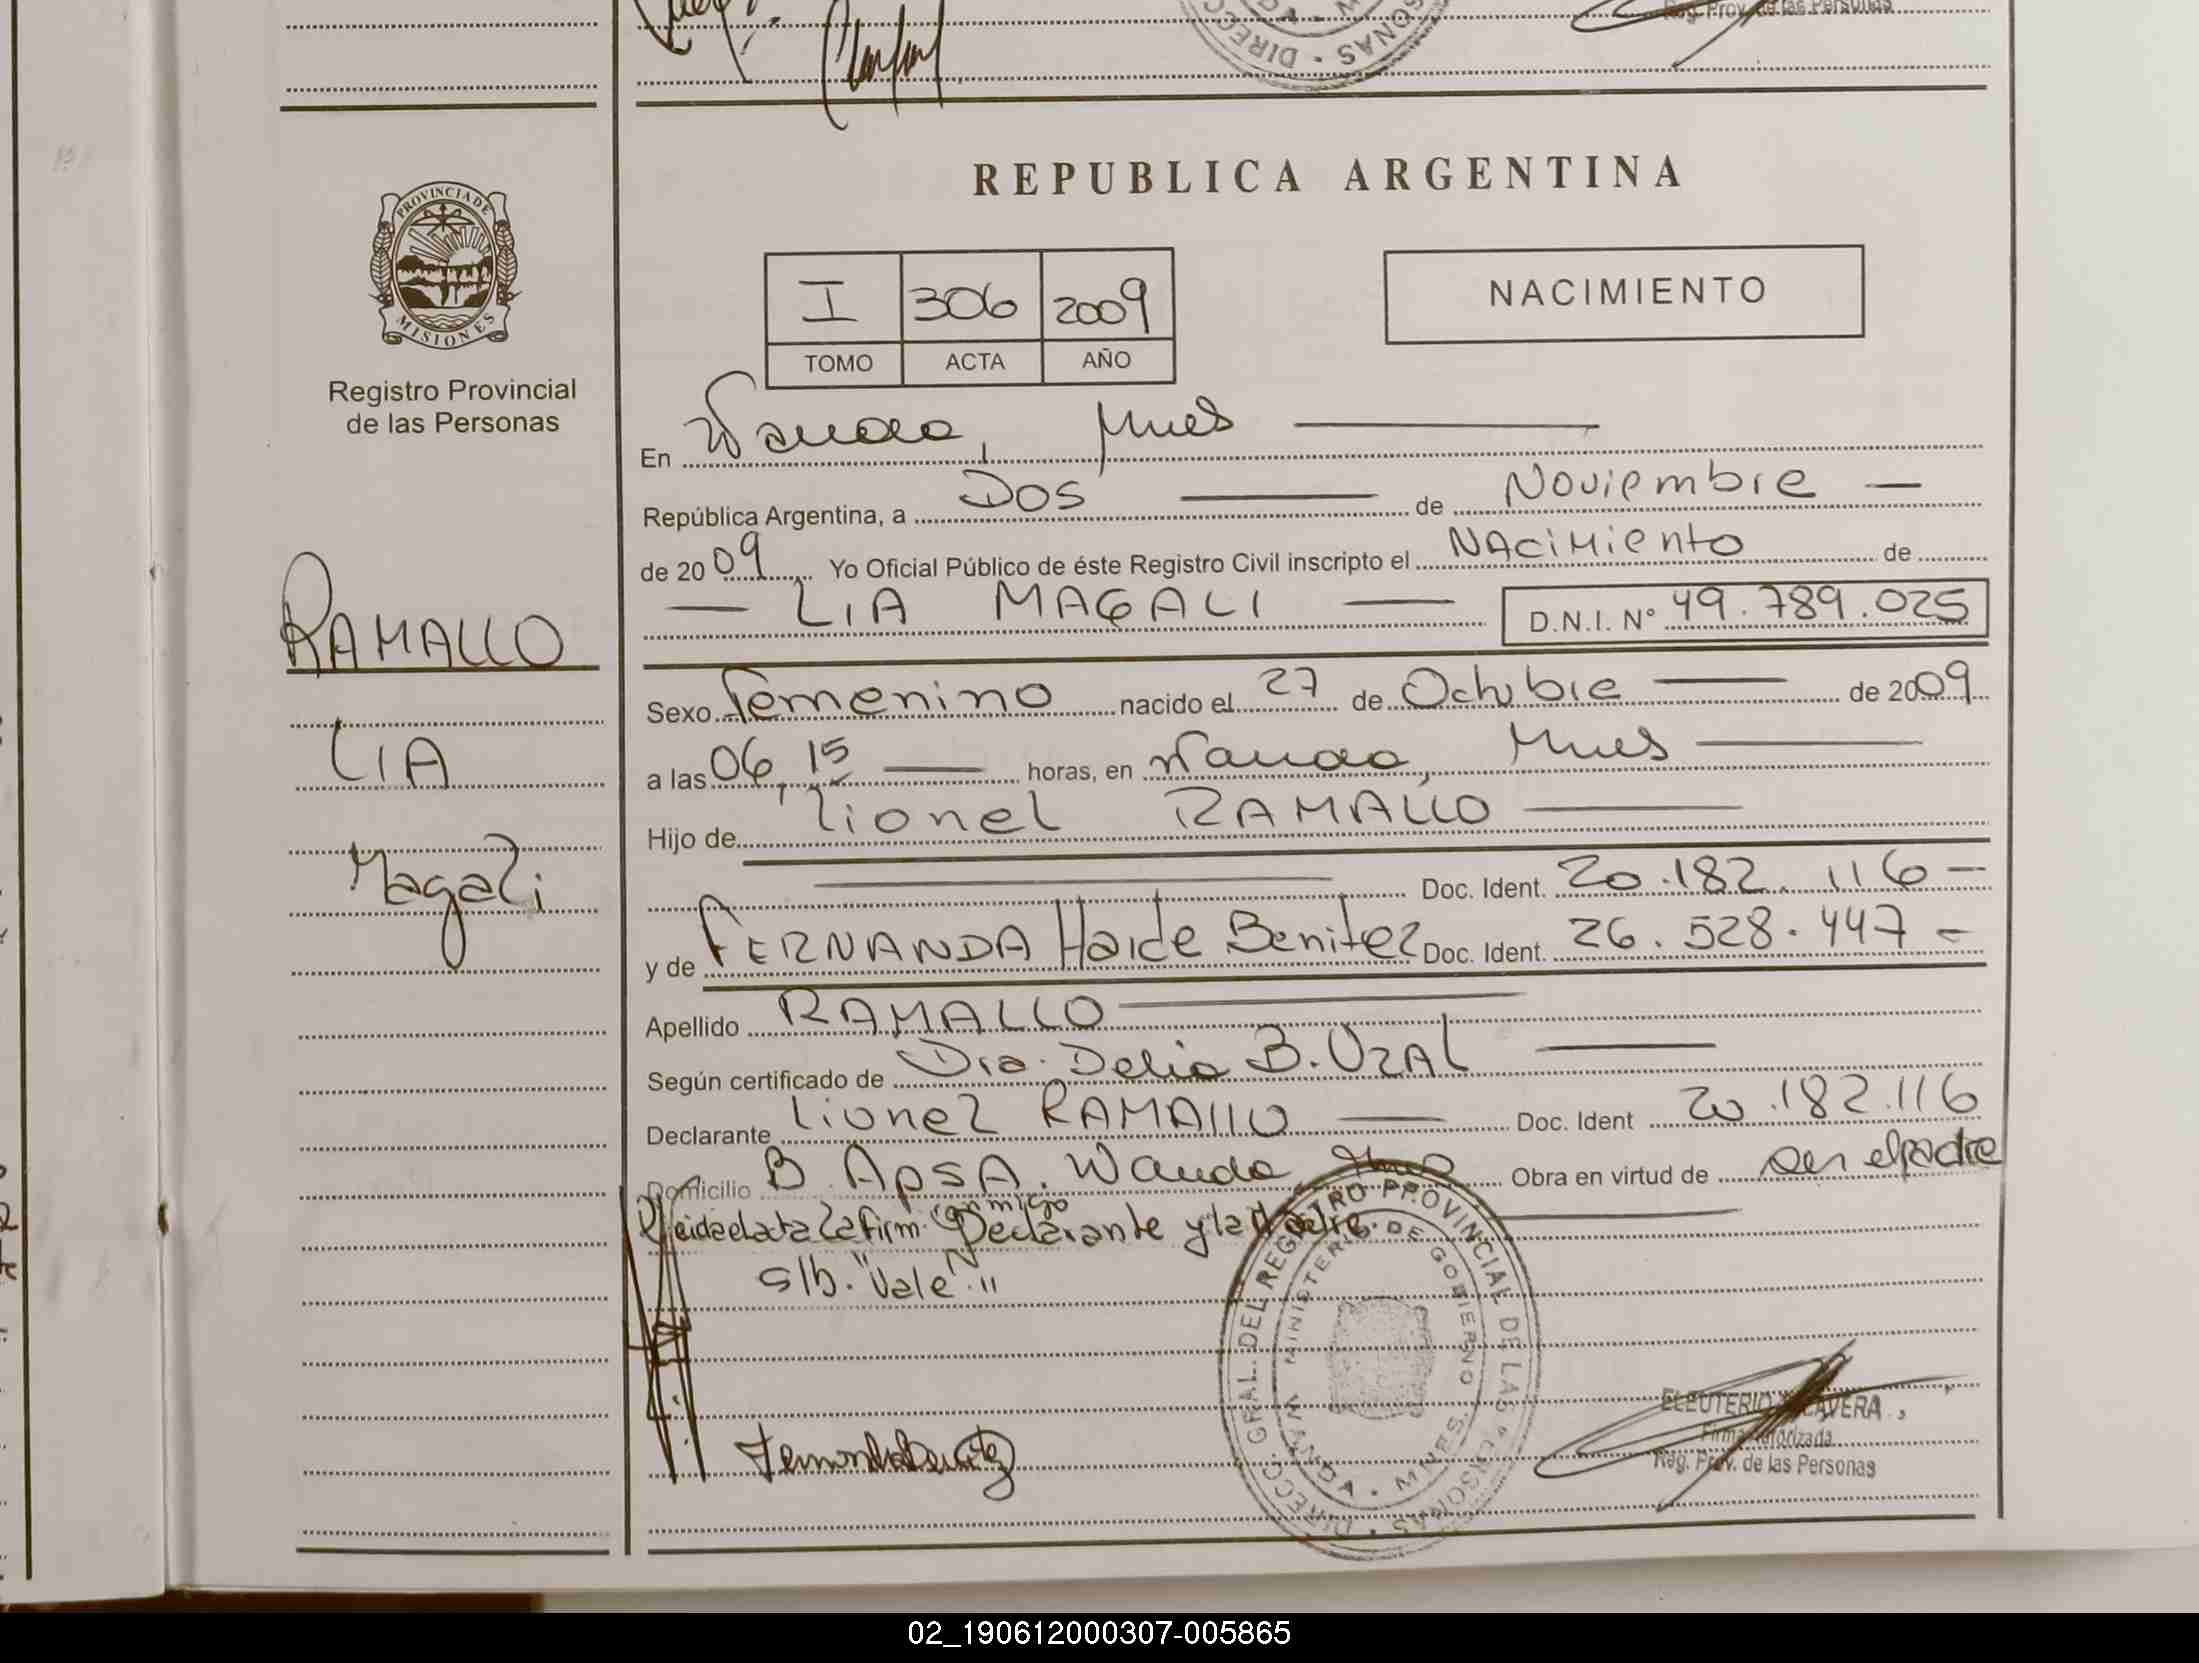 Reg. Prov. de las Personas
REPUBLICA ARGENTINA
PROVINCIA DE
MISIONES
Registro Provincial
de las Personas
RAMALLO
LIA
Magali
I 306 2009
TOMO ACTA AÑO
NACIMIENTO
En Wanda, Mnes
República Argentina, a DOS de Noviembre
de 2009 Yo Oficial Público de éste Registro Civil inscripto el NAciMiento de
LIA MAGALI D.N.I. Nº 49.789.025
Sexo Femenino nacido el 27 de Octubre de 2009
a las 06,15 horas, en Wanda, Mnes
Hijo de Lionel RAMALLO
Doc. Ident. 20.182.116
y de FERNANDA Haide Benitez Doc. Ident. 26.528.447
Apellido RAMALLO
Según certificado de Dra. Delia B. UZAL
Declarante Lionel RAMALLO Doc. Ident 20.182.116
Domicilio B APSA. Wanda Mnes Obra en virtud de ser el padre
Leida el acta la firm. "conmigo" Declarante y la Madre.
s/b. "Vale"
Fernanda Benitez
DIRECC. GRAL. DEL REGISTRO PROVINCIAL DE LAS PERSONAS
MINISTERIO DE GOBIERNO
WANDA - MNES.
ELEUTERIO
Firma Autorizada
Reg. Prov. de las Personas
02_190612000307-005865